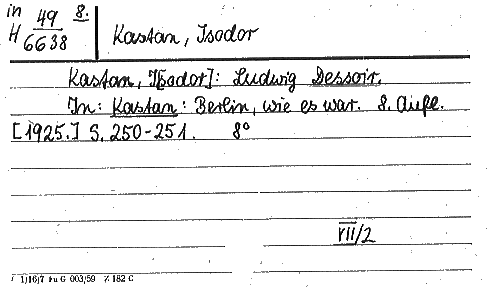 in 49 8.
H 6638
Kastan, Isodor
Kastan, I[sodor]: Ludwig Dessoir.
In: Kastan: Berlin, wie es war. 8. Aufl.
[1925.] S. 250-251. 8°
VII/2
1)16)7 G 003/59 182 C